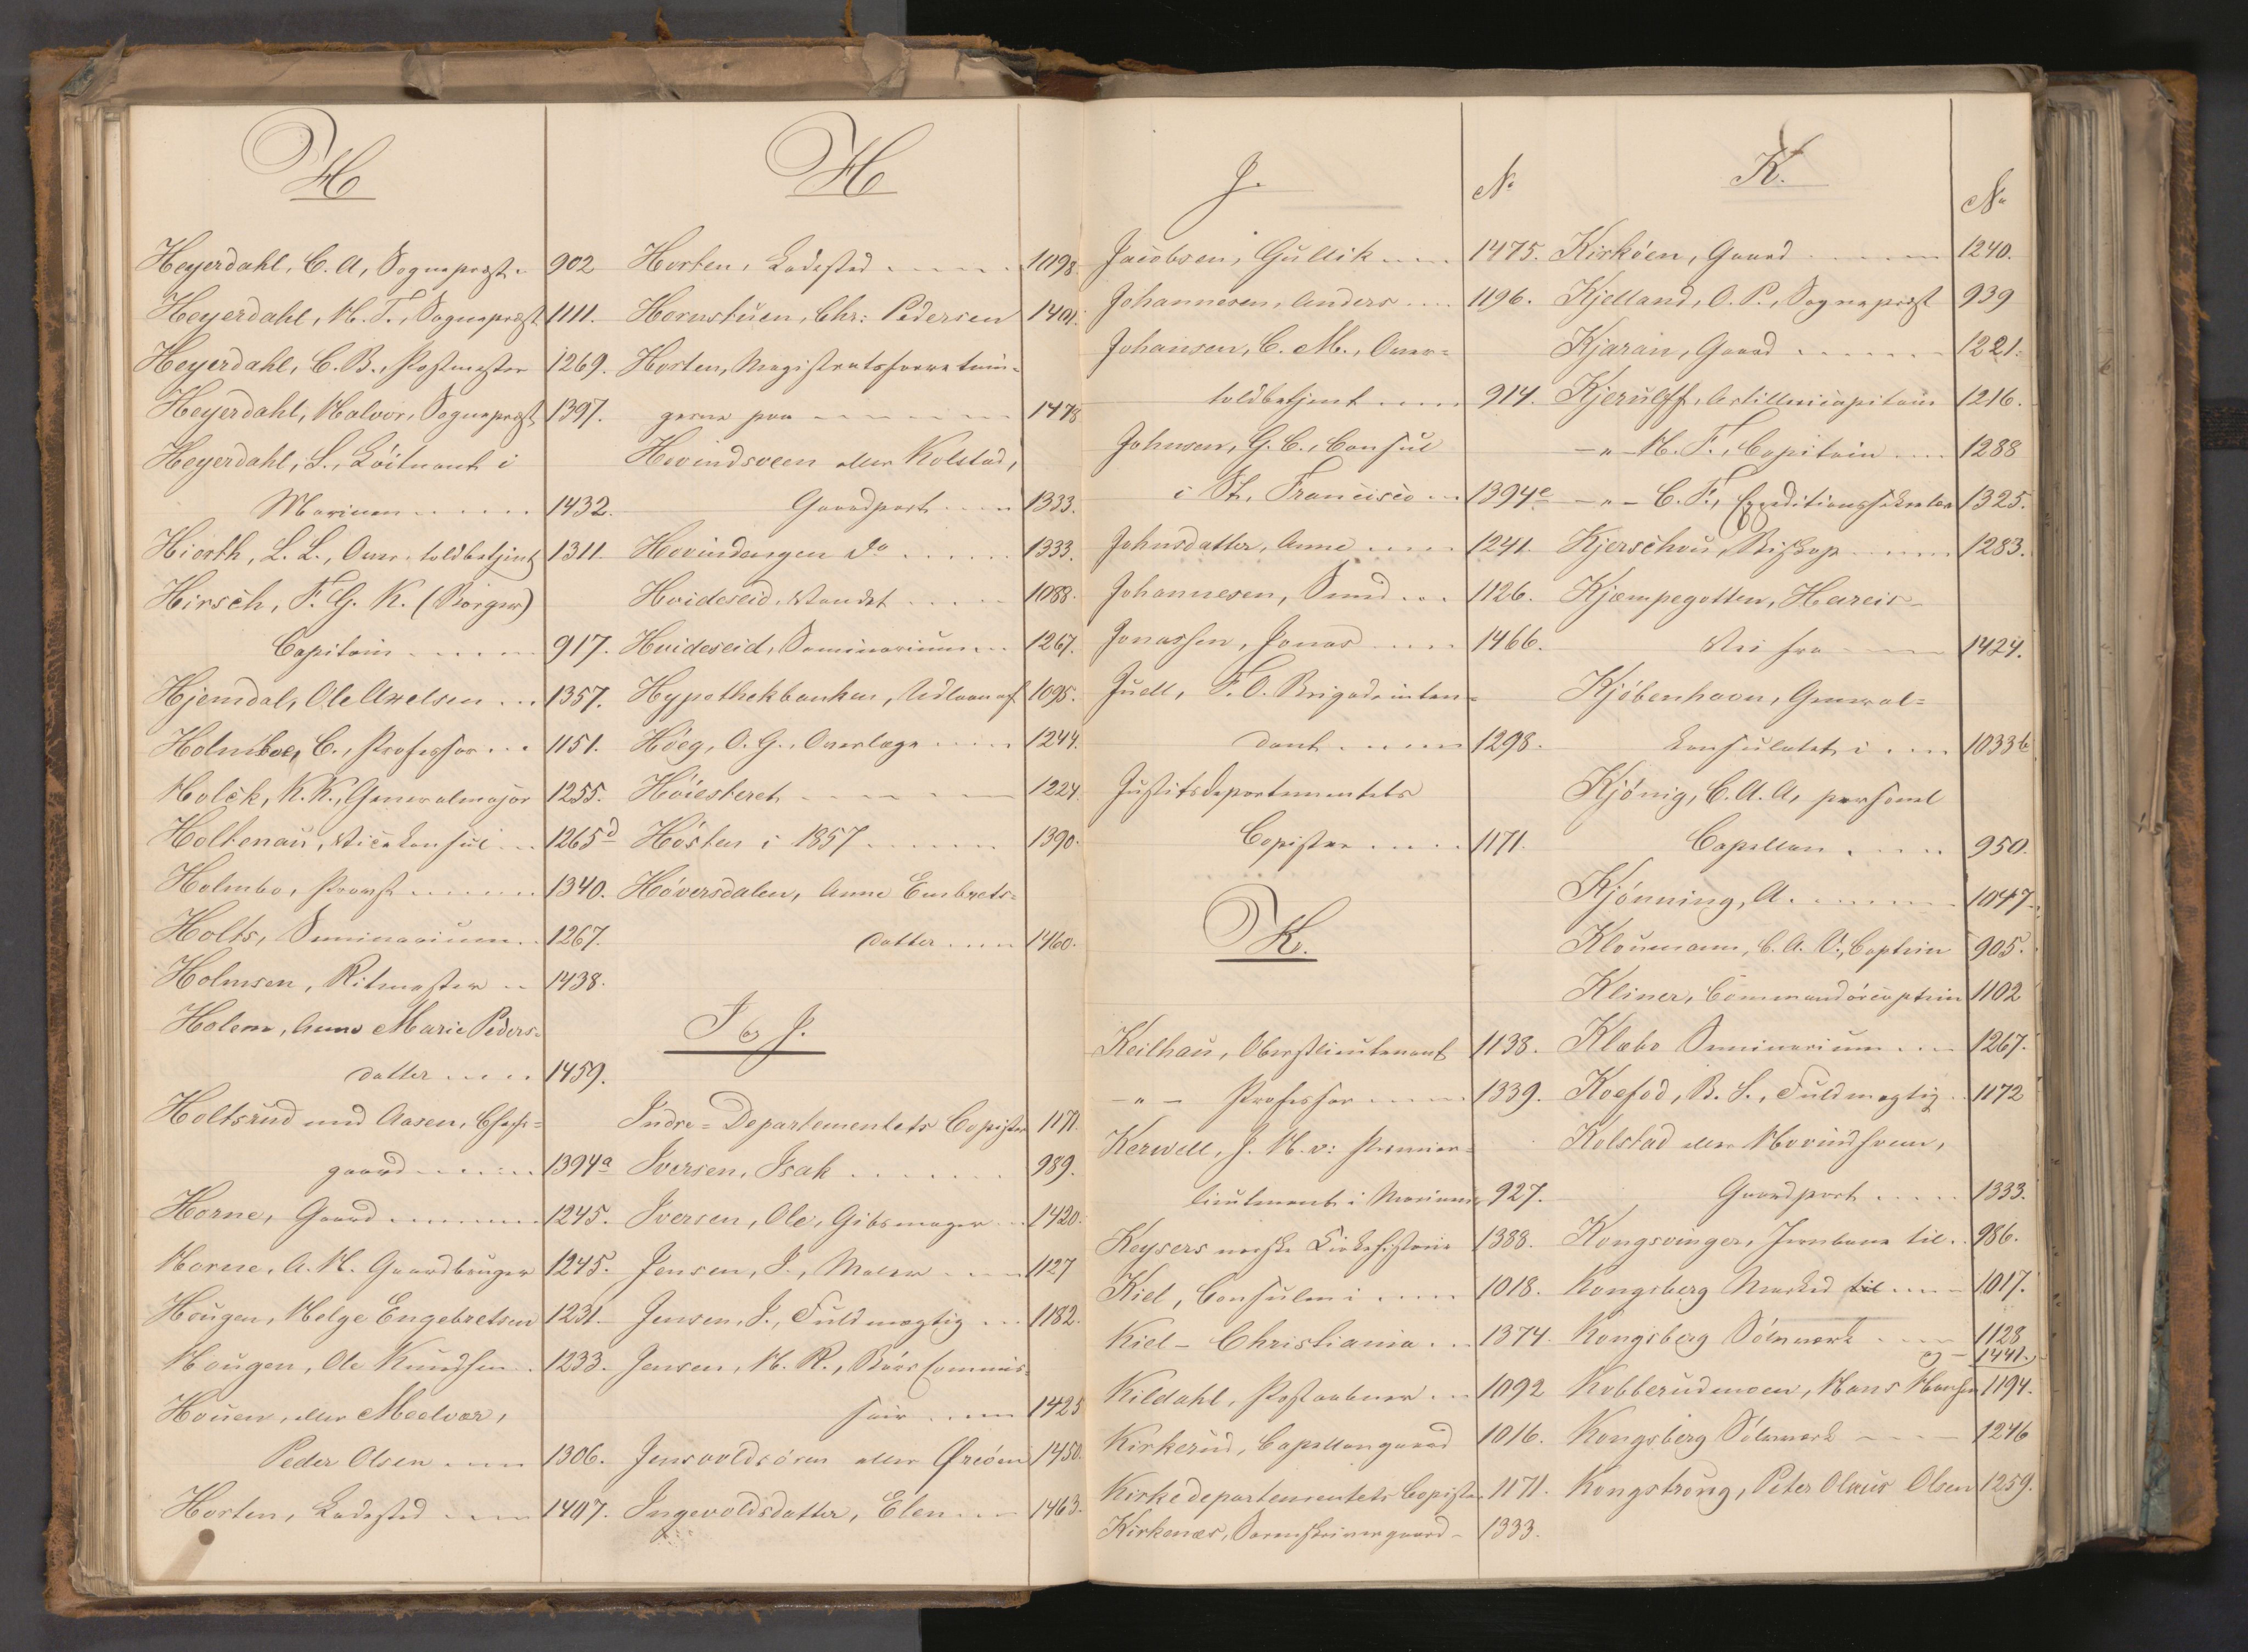 H
Heyerdahl, C. A, Sognepræst. 902
Heyerdahl, H. T., Sognepræst 1111.
Heyerdahl, C. B., Postmester 1269.
Heyerdahl, Halvor, Sognepræst 1397.
Heyerdahl, S., Löitnant i
Marinen ..... 1432.
Hierth, L. L., Over-toldbetjent 1311.
Hirsch, F. G. K. (Borger)
Capitain ..... 917.
Hjemdal, Ole Axelsen ... 1357.
Holmboe, C., Professor ... 1151.
Holck, K. K., Generalmajor 1255.
Holtenau, Vicekonsul ... 1265d
Holmbo, Provst ...... 1340.
Holts, Seminarium .. 1267.
Holmsen, Ritmester .. 1438.
Holem, Anne Marie Peders-
datter ..... 1459.
Holtsrud med Aasen, Chefs-
gaard ...... 1394a
Horne, Gaard ....... 1245.
Horne, A. H. Gaardbruger 1245.
Hougen, Helge Engebretsen 1231.
Hougen, Ole Knudsen . 1233.
Houen, eller Meelvær,
Peder Olsen .... 1306.
Horten, Ladested .... 1407.
H
Horten, Ladested ..... 1198.
Hornstuen, Chr: Pedersen 1401.
Horten, Magistratsforretnin-
gerne paa ....... 1478
Hovindsveen eller Kolstad,
Gaardpart .... 1333.
Hovindengen do ...... 1333.
Hvideseid, Vandet ..... 1088.
Hvideseid, Seminarium ... 1267.
Hypothekbanken, Udlaan af 1095.
Höeg, O. G., Overlæge .... 1244.
Höiesteret ....... 1224.
Hösten i 1857 ...... 1390.
Höversdalen, Anne Embrets-
datter .... 1460.
I og J.
Indre-Departementets Copister 1171.
Iversen, Isak ....... 989.
Iversen, Ole, Gibsmager ... 1420.
Jensen, J., Maler .... 1127
Jensen, J., Fuldmægtig ... 1182.
Jensen, H. R., Börscommis-
sair .... 1425
Jensvoldsören eller Öreöen 1450.
Ingevoldsdatter, Elen ... 1463.
J. No
Jacobsen, Gullik .... 1475.
Johannesen, Anders .... 1196.
Johansen, C. M., Over-
toldbetjent .... 914.
Johnsen, G. C., Consul
i St. Francisco .. 1394e
Johnsdatter, Anne .... 1241.
Johannesen, Svend ... 1126.
Jonassen, Jonas .... 1466.
Juell, F. O. Brigadeinten-
dant ..... 1298.
Justitsdepartementets
Copister .... 1171.
K.
Keilhau, Oberstlieutenant 1138.
-"- Professor ..... 1339.
Kerwell, J. H. v: Premier-
lieutenant i Marinen 927.
Keysers norske Kirkehistorie 1388.
Kiel, Consulen i .... 1018.
Kiel - Christiania ... 1374.
Kildahl, Postaabner ... 1092
Kirkerud, Capellangaard 1016.
Kirkedepartementets Copister 1171.
Kirkenæs, Sorenskrivergaard - 1333.
K. No
Kirköen, Gaard ...... 1240.
Kjelland, O. P., Sognepræst 939
Kjaran, Gaard ....... 1221.
Kjerulff, Artillericapitain 1216.
-"- H. F., Capitain .... 1288
-"- C. F., Expeditionssekretær 1325.
Kjerschow, Biskop ..... 1283.
Kjæmpegotten, Hareis-
Vei fra ..... 1424.
Kjöbenhavn, General-
konsulatet i .... 1033b
Kjönig, C. A. A, personel
Capellan ..... 950.
Kjönning, A. ....... 1047.
Kloumann, C. A. V., Captein 905.
Kliner, Commandörcaptein 1102
Klæbo Seminarium .... 1267.
Koefod, B. S., Fuldmægtig .. 1172
Kolstad eller Hovindsveen,
Gaardpart ..... 1333.
Kongsvinger, Jernbane til .. 986.
Kongsberg Marked til .... 1017.
Kongsberg Sölvværk .... 1128
og - 1441.
Kobberudmoen, Hans Hansen 1194.
Kongsberg Sölvværk .... 1246
Kongstrong, Peter Olaus Olsen 1259.